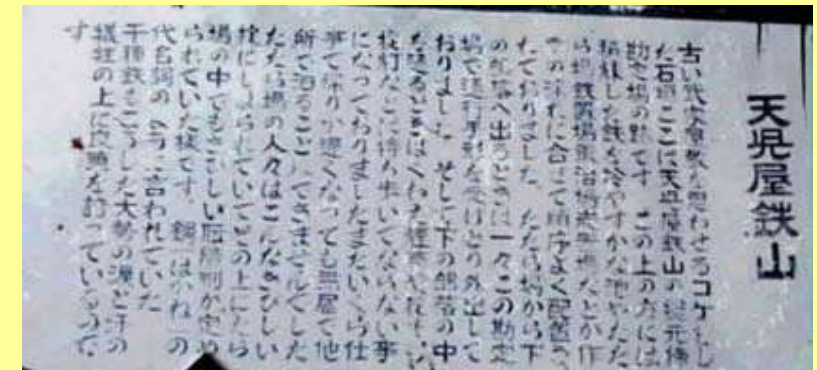 天児屋鉄山
古い代官屋敷を思わせるコケむし
た石垣ここは天児屋鉄山の総元締
勘定場の跡です この上の方には
精錬した鉄を冷やすかな池やたた
ら場鉄置場鍛冶場炭米場などが作
業の流れに合せて順序よく配置さ
れておりました たたら場から下
の部落へ出るときは一々この勘定
場で通行手形を受けとり外出して
おりました そして下の部落の中
を通るときはくわえ煙草や夜も
提灯などは持ち歩いてならない事
になっておりましたまたいくら仕
事で帰りが遅くなっても無届で他
所で泊ることはできませんでした
たたら場の人々はこんなきびしい
掟にしばられていてその上したら
場の中でもきびしい 刑が定め
られていた様です 鋼はかねの
代名詞の様に言われていた
千種鉄もこうした大勢の涙と汗の
犠牲の上に成 っているので
す